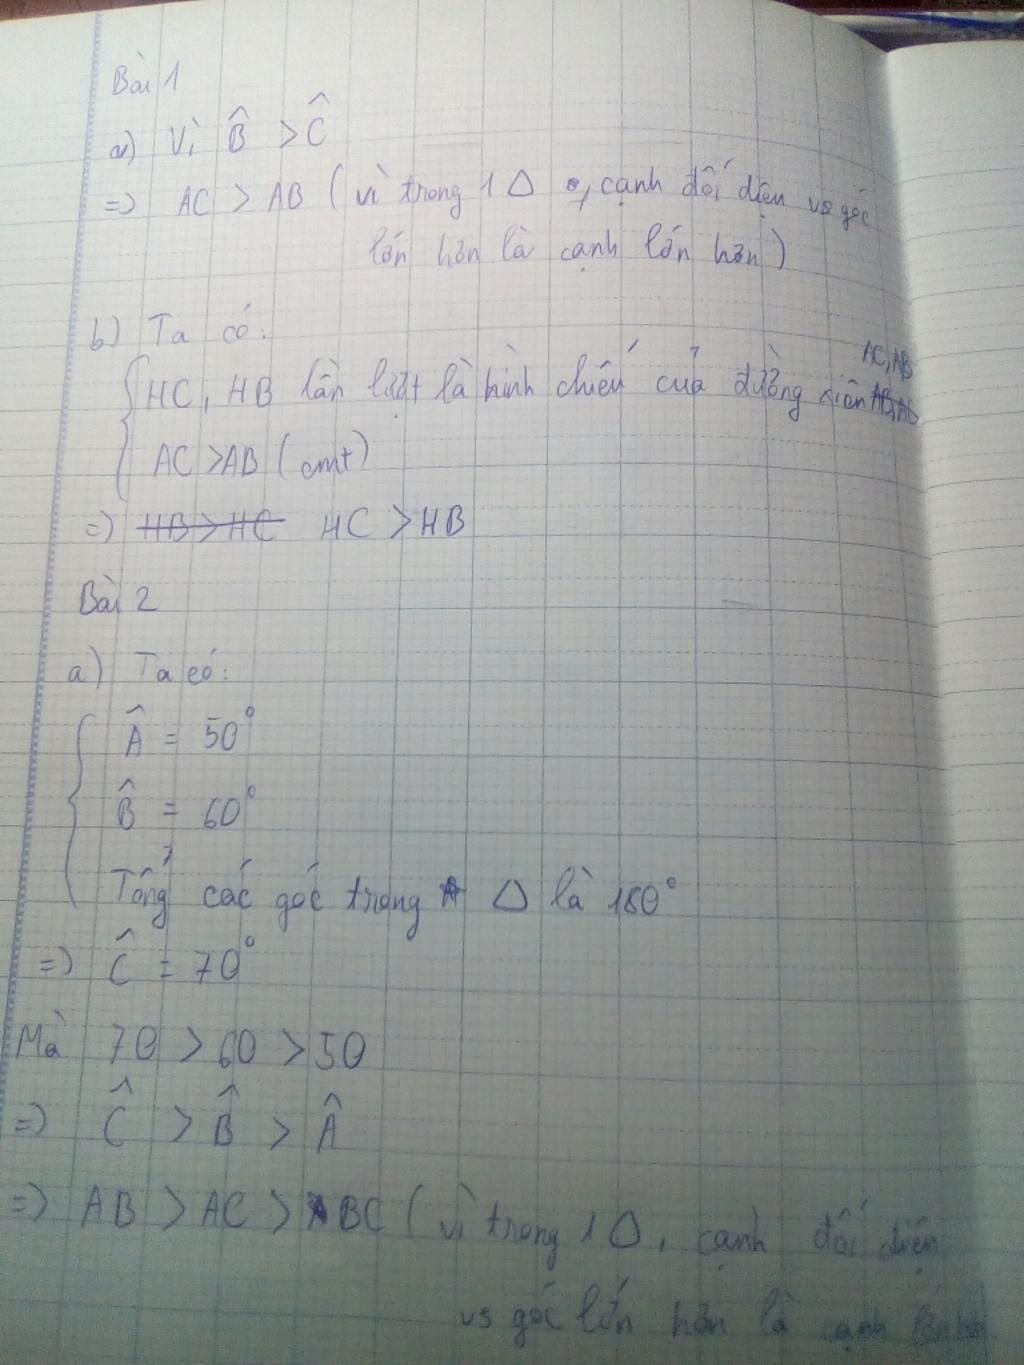 Bài 1
a) Vì B̂ > Ĉ
=> AC > AB ( vì trong 1 Δ , cạnh đối diện vs góc
lớn hơn là cạnh lớn hơn )
b) Ta có:
AC, AB
HC, HB lần lượt là hình chiếu của đường xiên
AC > AB ( cmt )
=> HB > HC HC > HB
Bài 2
a) Ta có:
Â = 50°
B̂ = 60°
Tổng các góc trong Δ là 180°
=> Ĉ = 70°
Mà 70 > 60 > 50
=> Ĉ > B̂ > Â
=> AB > AC > BC ( vì trong 1 Δ, cạnh đối diện
vs góc lớn hơn là cạnh lớn hơn